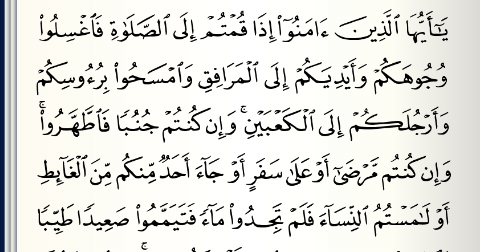 يَـٰٓأَيُّهَا ٱلَّذِينَ ءَامَنُوٓا۟ إِذَا قُمْتُمْ إِلَى ٱلصَّلَوٰةِ فَٱغْسِلُوا۟
وُجُوهَكُمْ وَأَيْدِيَكُمْ إِلَى ٱلْمَرَافِقِ وَٱمْسَحُوا۟ بِرُءُوسِكُمْ
وَأَرْجُلَكُمْ إِلَى ٱلْكَعْبَيْنِ ۚ وَإِن كُنتُمْ جُنُبًا فَٱطَّهَّرُوا۟ ۚ
وَإِن كُنتُم مَّرْضَىٰٓ أَوْ عَلَىٰ سَفَرٍ أَوْ جَآءَ أَحَدٌ مِّنكُم مِّنَ ٱلْغَآئِطِ
أَوْ لَـٰمَسْتُمُ ٱلنِّسَآءَ فَلَمْ تَجِدُوا۟ مَآءً فَتَيَمَّمُوا۟ صَعِيدًا طَيِّبًا